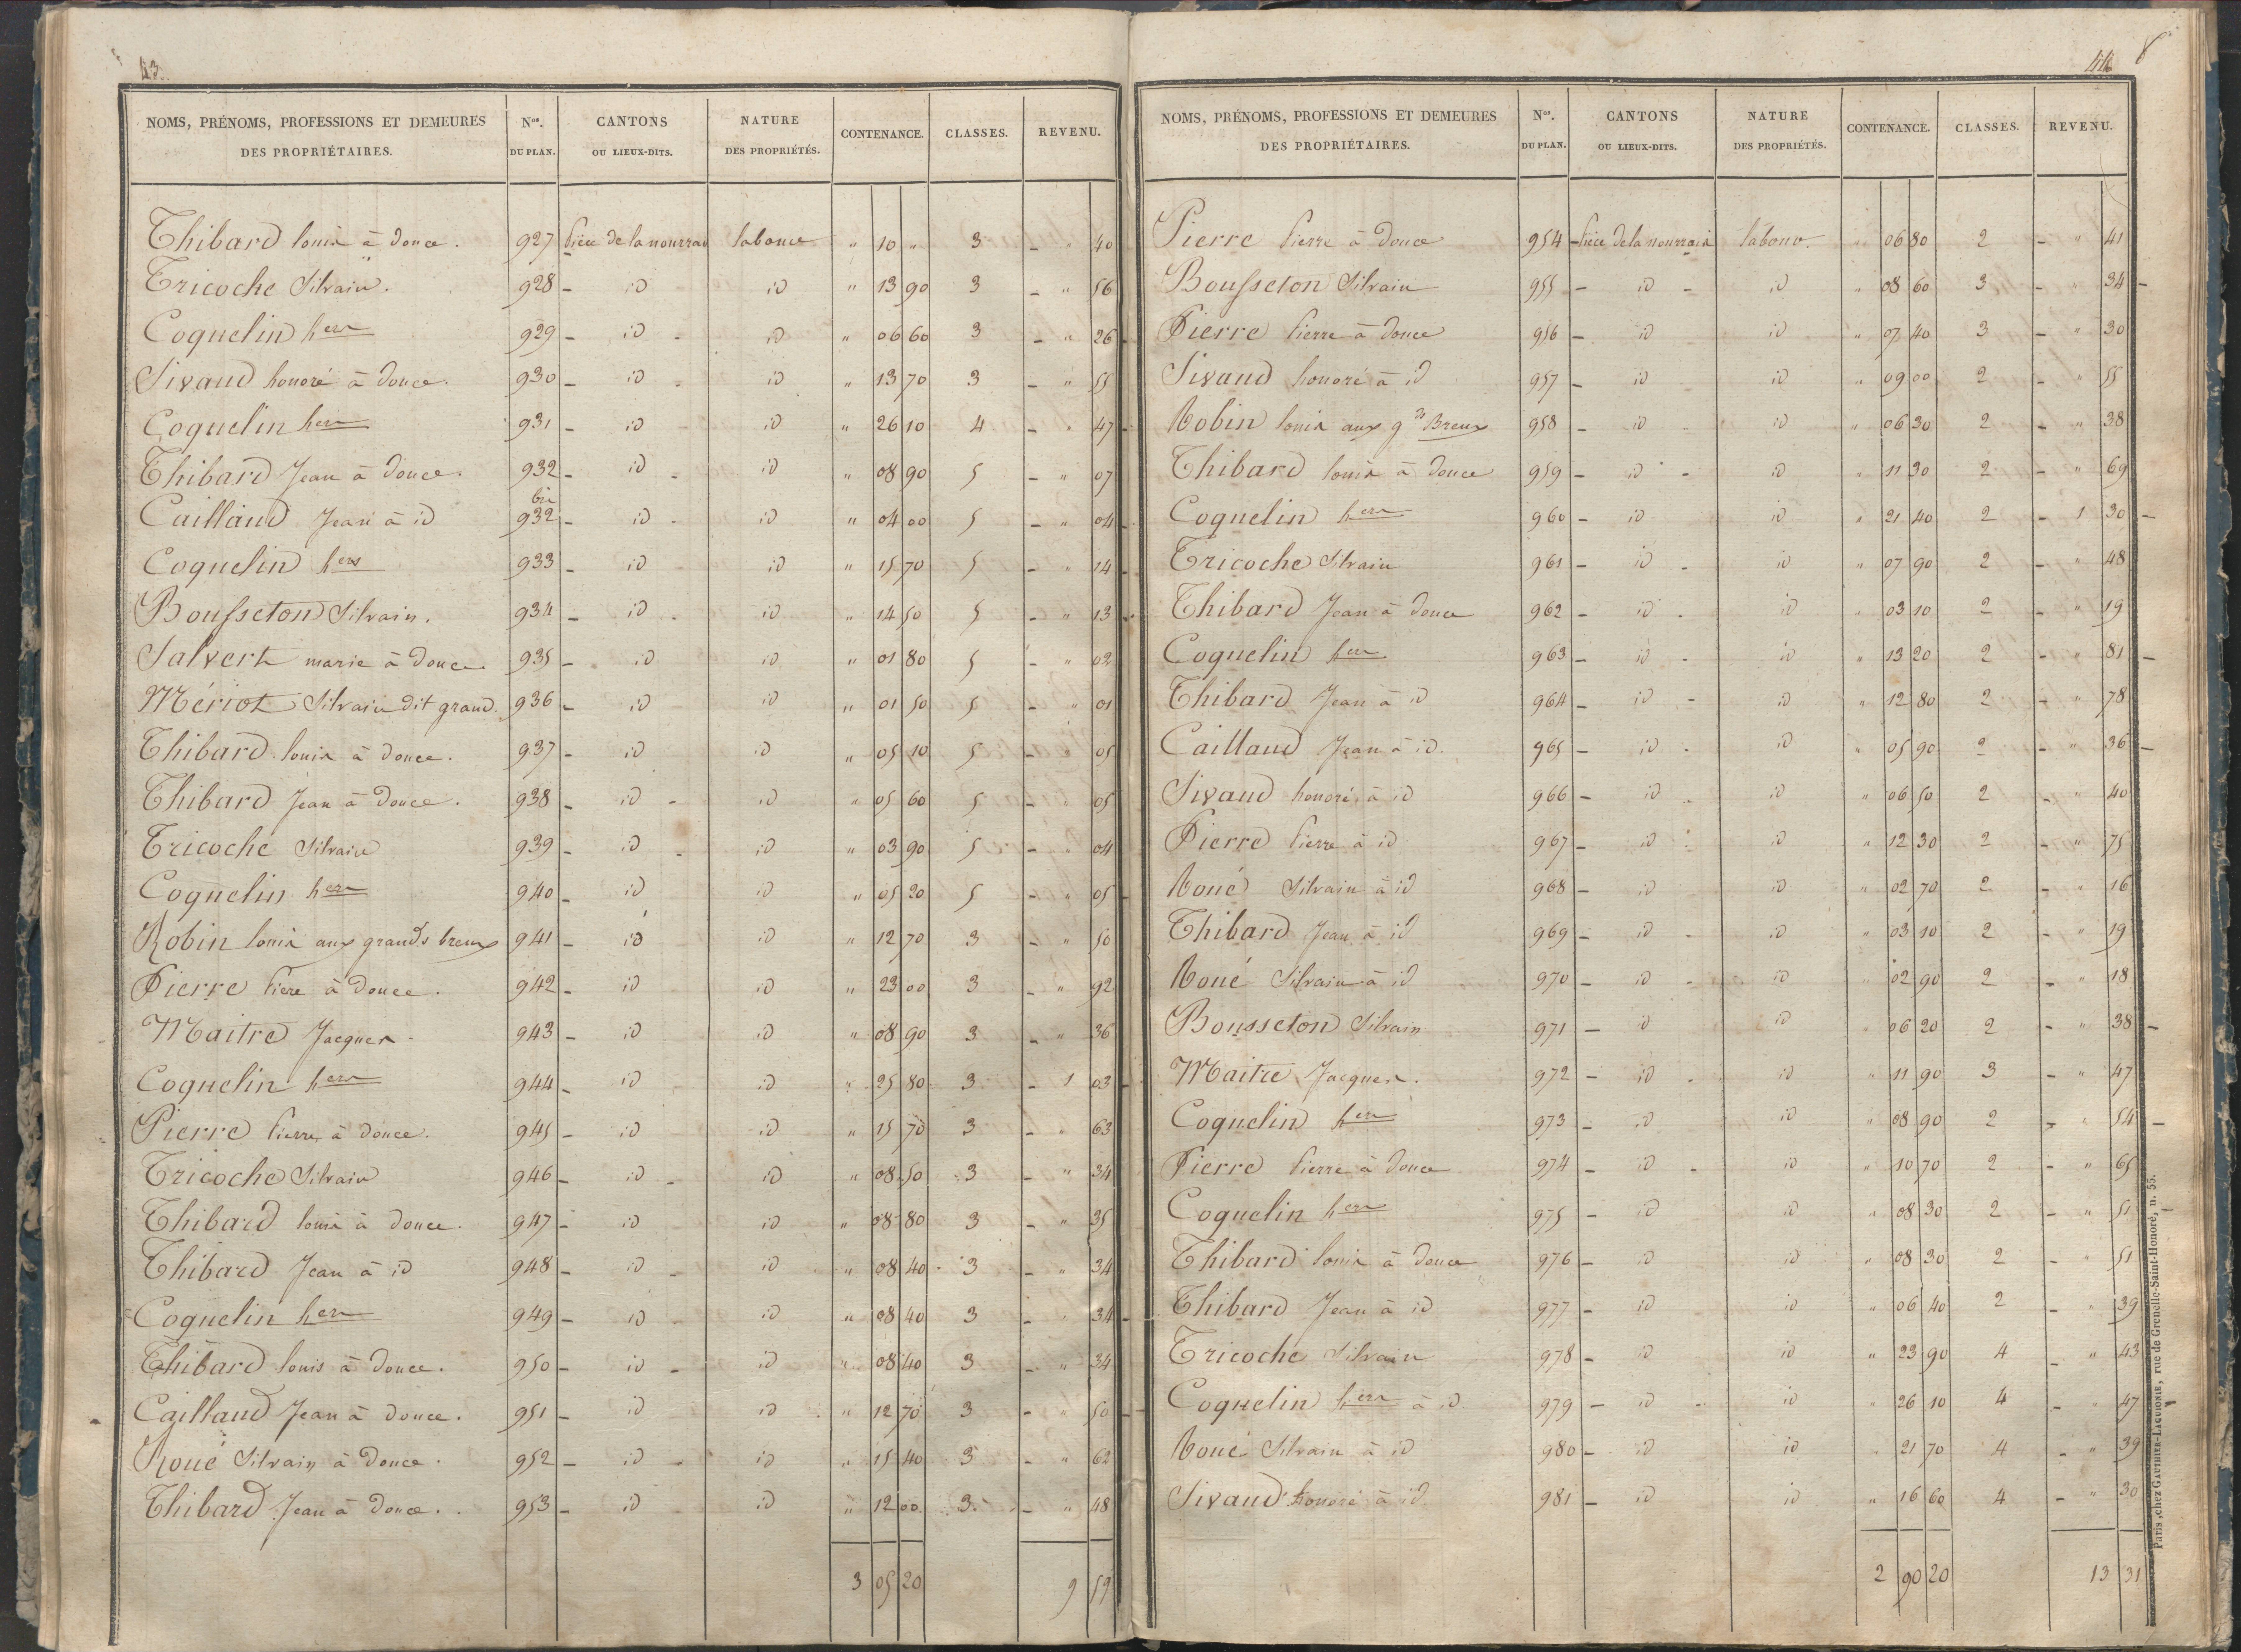 43.
NOMS, PRÉNOMS, PROFESSIONS ET DEMEURES DES PROPRIÉTAIRES. Nos. DU PLAN. CANTONS OU LIEUX-DITS. NATURE DES PROPRIÉTÉS. CONTENANCE. CLASSES. REVENU.
Thibard louis à douce. 927 pièce de la nourrais labour " 10 " 3 - " 40
Tricoche Silvain. 928 - id id " 13 90 3 - " 56
Coquelin hers 929 - id - id " 06 60 3 - " 26 -
Sivaud honoré à douce. 930 - id - id " 13 70 3 - " 55
Coquelin hers 931 - id - id " 26 10 4 - " 47 -
Thibard Jean à douce. 932 - id - id " 08 90 5 - " 07
Caillaud Jean à id 932 bis - id - id " 04 00 5 - " 04 -
Coquelin hers 933 - id - id " 15 70 5 - " 14 -
Bousseton Silvain. 934 - id - id " 14 50 5 - " 13 -
Salvert marie à douce. 935 - id id " 01 80 5 - " 02
Mériot Silvain dit grand. 936 - id id " 01 50 5 - " 01
Thibard louis à douce. 937 - id id " 05 10 5 - " 05
Thibard Jean à douce. 938 - id - id " 05 60 5 - " 05
Tricoche Silvain 939 - id - id " 03 90 5 - " 04
Coquelin hers 940 - id id " 05 20 5 - " 05 -
Robin louis aux grands breux 941 - id id " 12 70 3 - " 50
Pierre Piere à douce. 942 - id id " 23 00 3 - " 92
Maitre Jacques. 943 - id id " 08 90 3 - " 36
Coquelin hers 944 - id id " 25 80 3 - 1 03 -
Pierre Pierre à douce. 945 - id id " 15 70 3 - " 63
Tricoche Silvain 946 - id - id " 08 50 3 - " 34
Thibard louis à douce. 947 - id id " 08 80 3 - " 35
Thibard Jean à id 948 - id - id " 08 40 3 - " 34
Coquelin hers 949 - id - id " 08 40 3 - " 34 -
Thibard louis à douce. 950 - id - id " 08 40 3 - " 34
Caillaud Jean à douce. 951 - id id " 12 70 3 - " 50 -
Roué Silvain à douce. 952 - id - id " 15 40 3 - " 62
Thibard Jean à douce. 953 - id id " 12 00 3 - " 48
3 05 20 9 59
44
8
NOMS, PRÉNOMS, PROFESSIONS ET DEMEURES DES PROPRIÉTAIRES. Nos. DU PLAN. CANTONS OU LIEUX-DITS. NATURE DES PROPRIÉTÉS. CONTENANCE. CLASSES. REVENU.
Pierre Pierre à douce 954 - pièce de la nourrais labour. " 06 80 2 - " 41
Bousseton Silvain 955 - id - id " 08 60 3 - " 34 -
Pierre Pierre à douce 956 - id id " 07 40 3 - " 30
Sivaud honoré à id 957 - id id " 09 00 2 - " 55
Robin louis aux gds Breux 958 - id id " 06 30 2 - " 38
Thibard louis à douce 959 - id - id " 11 30 2 - " 69
Coquelin hers 960 - id id " 21 40 2 - 1 30 -
Tricoche Silvain 961 - id - id " 07 90 2 - " 48
Thibard Jean à douce 962 - id - id " 03 10 2 - " 19
Coquelin hers 963 - id - id " 13 20 2 - " 81 -
Thibard Jean à id 964 - id - id " 12 80 2 - " 78
Caillaud Jean à id. 965 - id - id " 05 90 2 - " 36 -
Sivaud honoré à id 966 - id - id " 06 50 2 - " 40
Pierre Pierre à id 967 - id id " 12 30 2 - " 75
Roué Silvain à id 968 - id id " 02 70 2 - " 16
Thibard Jean à id 969 - id - id " 03 10 2 - " 19
Roué Silvain à id 970 - id - id " 02 90 2 - " 18
Bousseton Silvain 971 - id id " 06 20 2 - " 38 -
Maitre Jacques. 972 - id - id " 11 90 3 - " 47
Coquelin hers 973 - id id " 08 90 2 - " 54 -
Pierre Pierre à douce 974 - id - id " 10 70 2 - " 65
Coquelin hers 975 - id id " 08 30 2 - " 51 -
Thibard louis à douce 976 - id id " 08 30 2 - " 51
Thibard Jean à id 977 - id id " 06 40 2 - " 39
Tricoche Silvain 978 - id id " 23 90 4 - " 43
Coquelin hers à id. 979 - id - id " 26 10 4 - " 47 -
Roué Silvain à id 980 - id id " 21 70 4 - " 39
Sivaud honoré à id. 981 - id id " 16 60 4 - " 30
2 90 20 13 31
Paris, chez GAUTHIER-LAGUIONIE, rue de Grenelle-Saint-Honoré, n. 55.